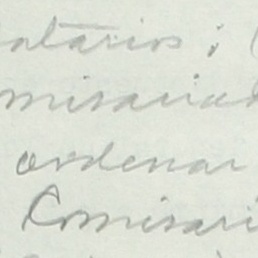 atarios; (
misariad
ordenar
Comisari